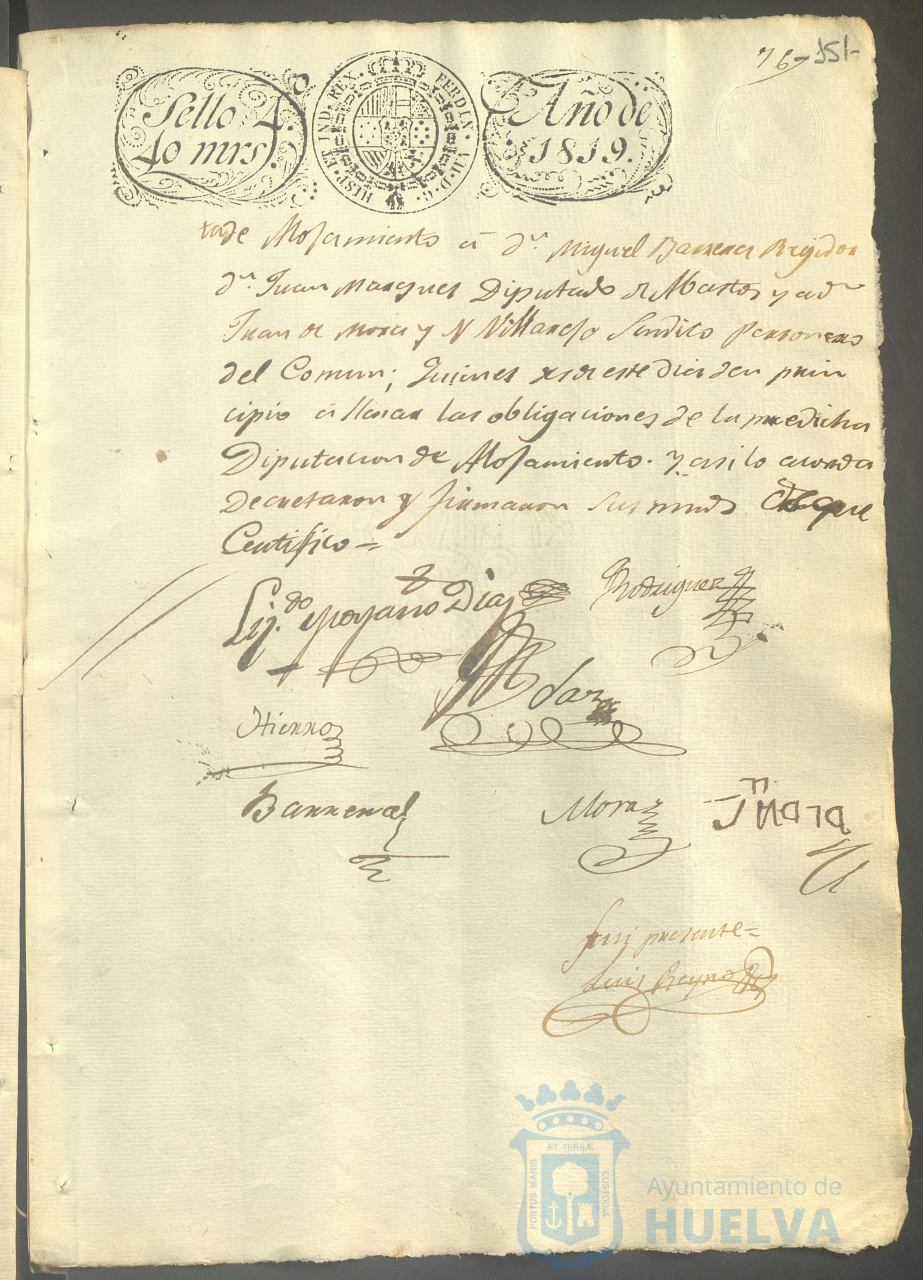 76 - 151-
Sello 4.º
40 mrs
HISP. ET IND. REX. FERDIN. VII. D. G.
Año de
1819.
de Alojamiento á Dn. Miguel Barrera Regidor
Dn. Juan Marques Diputado de Abastos y a Dn
Juan de Mora y N Villarejo Sindico Personero
del Comun; quienes desde este dia den prin
cipio á llenar las obligaciones de la predicha
Diputacion de Alojamiento. y asi lo acorda
Decretaron y firmaron sus mrds de que
Certifico =
Lij.do Moyano Diaz
Rodriguez
Hierro
Barrera
Mora
fui presente =
Luis Reyno
PORTUS MARIS ET TERRÆ CUSTODIA
Ayuntamiento de
HUELVA